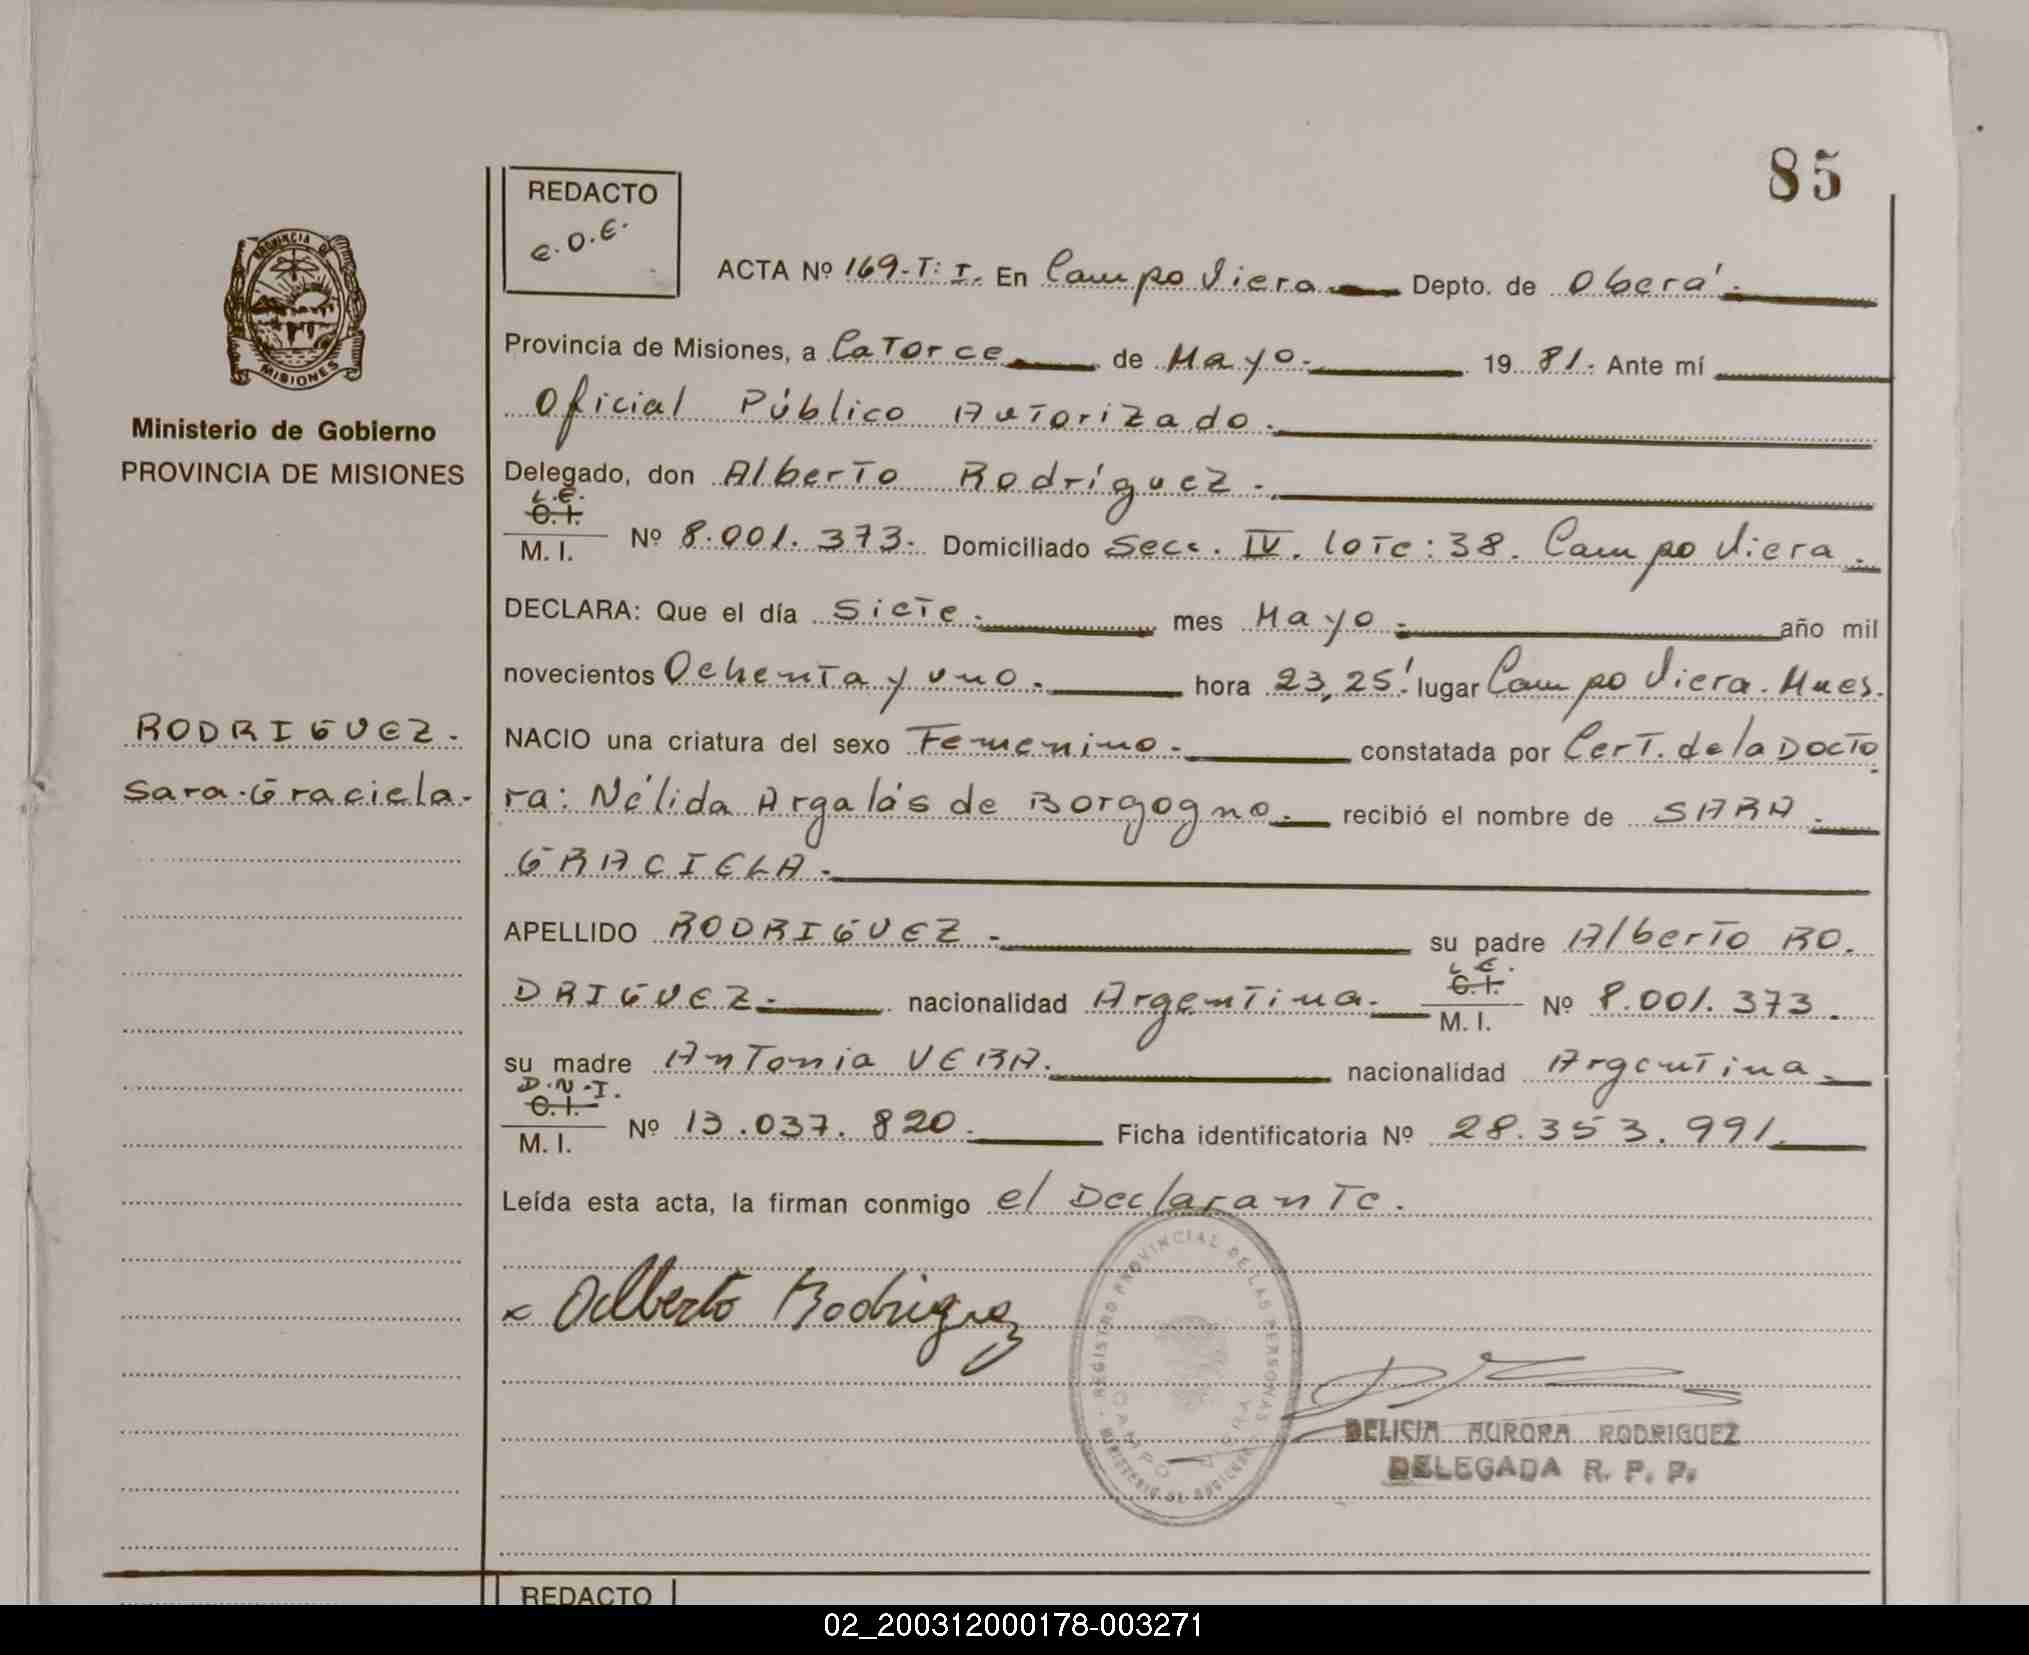 85
REDACTO
C.O.E.
ACTA Nº 169-T: I. En Campo Viera Depto. de Oberá.
PROVINCIA DE
MISIONES
Provincia de Misiones, a Catorce de Mayo. 1981. Ante mí
Oficial Público Autorizado.
Ministerio de Gobierno
PROVINCIA DE MISIONES
Delegado, don Alberto Rodríguez.
L.E.
C.I.
M. I. Nº 8.001.373. Domiciliado Secc. IV. lote: 38. Campo Viera.
DECLARA: Que el día Siete. mes Mayo. año mil
novecientos Ochenta y uno. hora 23,25' lugar Campo Viera. Mnes.
RODRIGUEZ.
NACIO una criatura del sexo Femenino. constatada por Cert. de la Docto
Sara Graciela.
ra: Nélida Argalás de Borgogno. recibió el nombre de SARA.
GRACIELA.
APELLIDO RODRIGUEZ. su padre Alberto RO.
DRIGUEZ. nacionalidad Argentina. L.E. C.I. M. I. Nº 8.001.373.
su madre Antonia VERA. nacionalidad Argentina.
D.N.I.
C.I.
M. I. Nº 13.037.820. Ficha identificatoria Nº 28.353.991.
Leída esta acta, la firman conmigo el Declarante.
x Alberto Rodriguez
REGISTRO PROVINCIAL DE LAS PERSONAS
CAMPO VIERA
MINISTERIO DE GOBIERNO
DELICIA AURORA RODRIGUEZ
DELEGADA R. P. P.
REDACTO
02_200312000178-003271